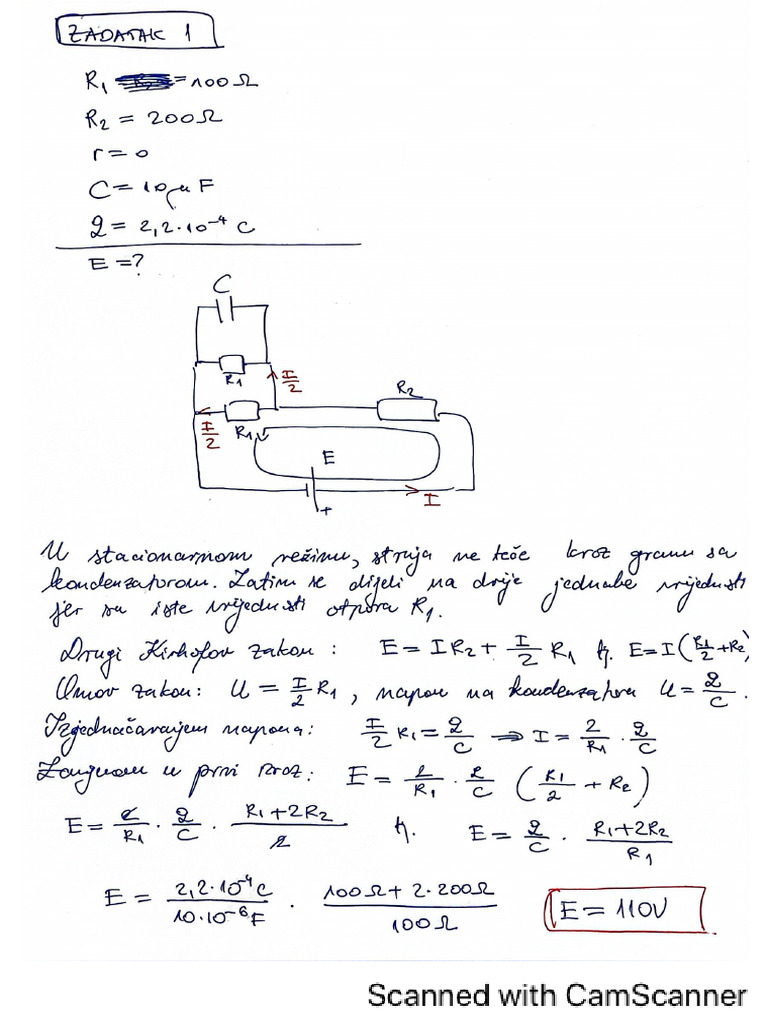 ZADATAK 1
R₁ = 100Ω
R₂ = 200Ω
r = 0
C = 10μF
Q = 2,2·10⁻⁴ C
E = ?
C
R₁ I/2
R₂
I/2 R₁
E
I
+
U stacionarnom režimu, struja ne teče kroz granu sa
kondenzatorom. Zatim se dijeli na dvije jednake vrijednosti
jer su iste vrijednosti otpora R₁.
Drugi Kirhofov zakon: E = IR₂ + I/2 R₁ tj. E = I(R₁/2 + R₂)
Omov zakon: U = I/2 R₁, napon na kondenzatoru U = Q/C.
Izjednačavanjem napona: I/2 R₁ = Q/C ⇒ I = 2/R₁ · Q/C
u prvi izraz: E = 2/R₁ · Q/C (R₁/2 + R₂)
E = 2/R₁ · Q/C · R₁+2R₂/2 tj. E = Q/C · R₁+2R₂/R₁
E = 2,2·10⁻⁴C/10·10⁻⁶F · 100Ω + 2·200Ω/100Ω E = 110V
Scanned with CamScanner